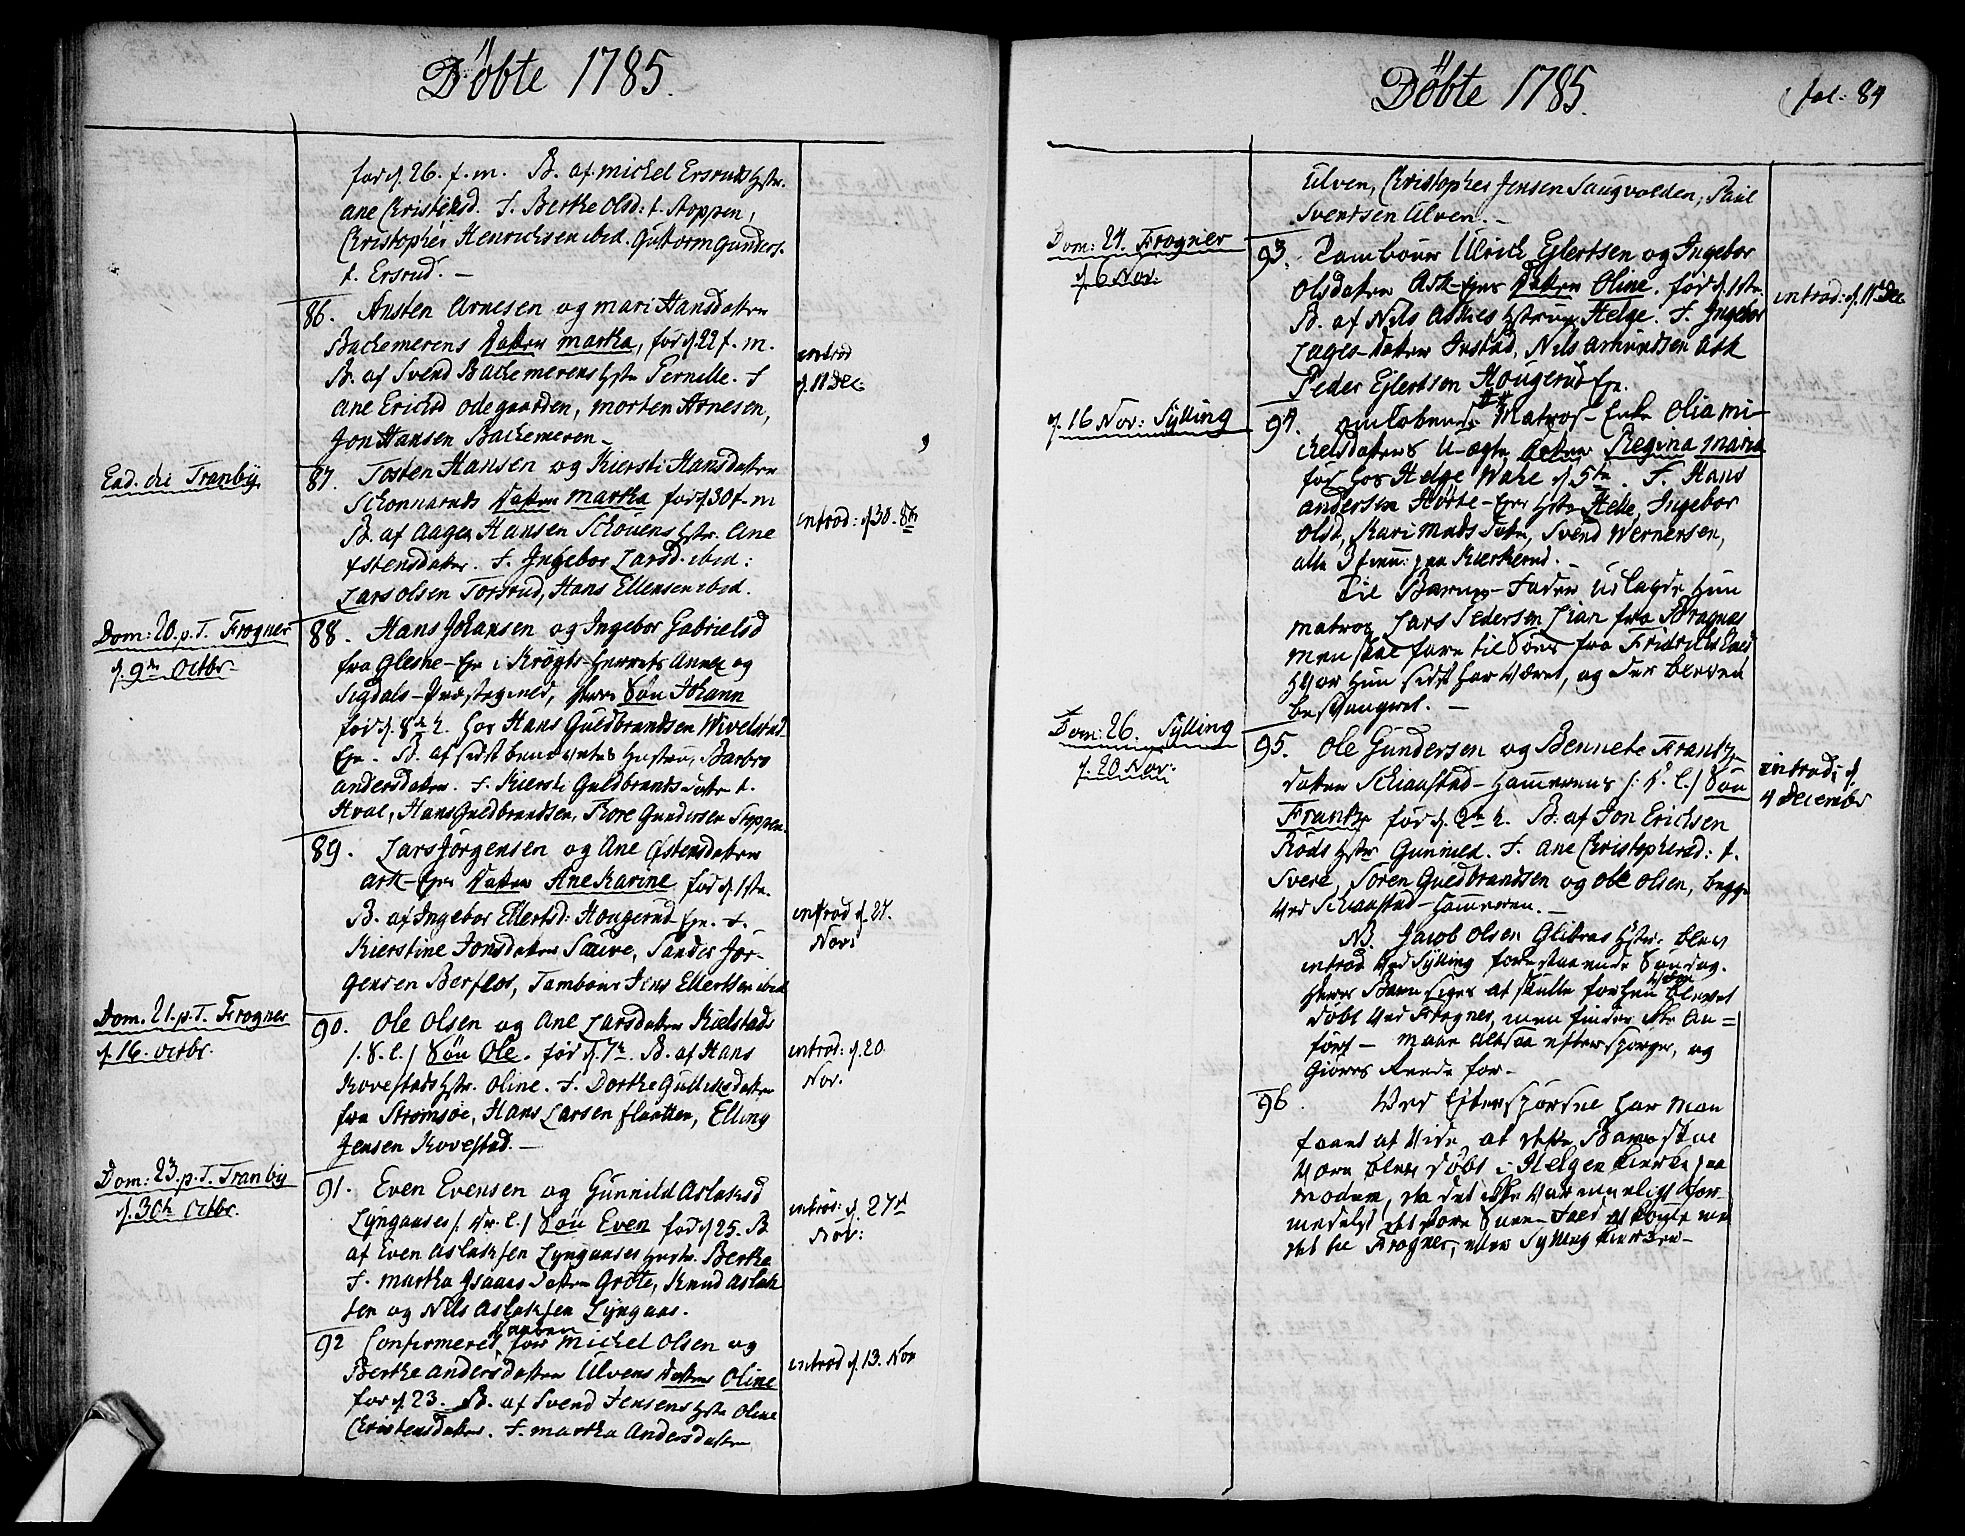 Döbte 1785.
föd d. 26. f. m. B. af Michel Ersruds Hstr.
Ane Christensd. F. Berthe Olsd: t. Stoppen,
Christopher Henrichsen ibid. Guttorm Gunders.
t. Ersrud. –
86. Ansten Arnesen og Mari Hansdatter
Bachemerens Datter Martha, föd d. 22 f. m.
B. af Svend Bachemerens Hstr Pernille. F
Ane Ericksd Odegaarden, Morten Arnesen,
Jon Hansen Bachemeren –
introd
d. 11 Dec.
Ead. die Tranby.
87. Tosten Hansen og Kiersti Hansdatter
Schonnaruds Datter Martha föd d. 30 f. m
B. af Aage Hansen Schouens Hstr. Ane
Estensdatter. F. Ingebor Larsd. ibid:
Lars Olsen Tosrud, Hans Ellensen ibid.
introd: d. 30. 8br
Dom: 20. p. T. Frogner
d. 9de Octbr.
88. Hans Johansen og Ingebor Gabrielsd
fra Glesne-Eje i Krögts-Herreds Annex og
Sigdals-Præstegield, deres Sön Johann
föd d. 8de h. hos Hans Guldbrandsen Wivelstad
Eje. B. af sidst benævntes Hustru, Barbro
Andersdatter. F. Kiersti Guldbrandsdatter t.
Hval, Hans Guldbrandsen, Tore Gundersen Stoppen.
89. Lars Jörgensen og Ane Östensdatter
Ask-Ejes Datter Ane Karine föd d. 1ste.
B. af Ingebor Ellertsd: Hougerud Eje. F.
Kierstine Jonsdatter Sauve, Sander Jör-
gensen Berflos, Tambour Jens Ellertsen ibid
introd d. 27.
Nov:
Dom. 21. p. T. Frogner
d. 16. Octbr.
90. Ole Olsen og Ane Larsdatter Kielstads
/: S. L. / Sön Ole. föd d. 7de. B. af Hans
Kovestads Hstr. Oline. F. Dorthe Gulliksdatter
fra Strömsöe, Hans Larsen Flaatten, Elling
Jensen Kovestad. –
introd: d. 20
Nov.
Dom: 23. p. T. Tranby
d. 30te Octbr.
91. Even Evensen og Gunnild Aslaksd
Lyngaases /: L. / Sön Even föd d. 25. B
af Even Aslaksen Lyngaases Hustr. Berthe
F. Martha Isaacsdatter Gröte, Knud Aslak
sen og Nils Aslaksen Lyngaas.
introd: d. 27de
Nov:
92 Confirmered Daaben for Michel Olsen og
Berthe Andersdatter Ulvens Datter Oline
föd d. 23. B. af Svend Jensens Hstr Oline
Christensdatter. F. Martha Andersdatter
introd d. 13. Nov
Döbte 1785.
fol: 84
Ulven, Christopher Jensen Saugvolden, Paul
Svendsen Ulven. –
Dom: 24. Frogner
d. 6 Nov:
93. Tambour Ulrich Ejlertsen og Ingebor
Olsdatter Ask-Ejes Datter Oline. föd d. 1ste
B. af Nils Askies Hstrue Helge. F. Ingebor
Lagesdatter Ivstad, Nils Asmundsen Ask
Peder Ejlertsen Hougerud Eje.
introd: d. 11te Dec
d. 16 Nov: Sylling
94. omlöbende Matros-Enke Olia Mi-
chelsdatters U-ægte Datter Regina Maria
föd hos Helge Wahe d. 5te. F. Hans
Andersen Hörte-Ejes Hstr Helle, Ingebor
Olsd, Kari Madsdatter, Svend Wernersen,
alle 3 paa Kierkerud. –
Til Barne-Fader Udlagde Hun
Matros Lars Pedersen Lian fra Bragnæs
men skal fare til Söes fra Friderichshald
hvor Hun sidst har Været, og der bleven
besvangret. –
Dom: 26. Sylling
d. 20 Nov:
95. Ole Gundersen og Bennete Frantz
datter Schiaustad-Hamerens /: L. / Sön
Frantz föd d. 2de h. B. af Jon Erichsen
Röds Hstr Gunnild. F. Ane Christophersd: t.
Svere, Sören Guldbrandsen og Ole Olsen, begge
Ved Schiaustad-Hameren. –
introd: d.
4 Decembr
NB. Jacob Olsen Glitres Hstr. blev
introd Ved Sylling forestaaende Söndag.
Hvis Barn siges at skulle forhen være blevet
döbt Ved Frogner, men findes ikke An=
fört – Maae altsaa efterspörges, og
Giöres Reede for –
96. Ved Efterspörsel har Man
faaet at Vide, at dette Barn skal
Være blevet döbt i Helgen Kierke paa
Modum, da det ikke var mueligt for-
medelst det store Snee-Fald at komme med
det til Frogner, eller Sylling Kierker –